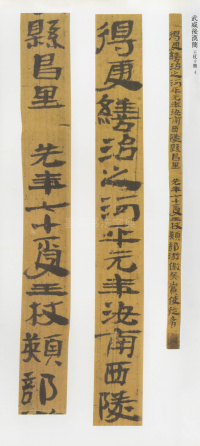 武威後漢簡
得更繕治之河平元年汝南西陵縣昌里 先年七十受王杖熲部游徼吳賞使從者
得更繕治之河平元年汝南西陵
縣昌里 先年七十受王杖熲部